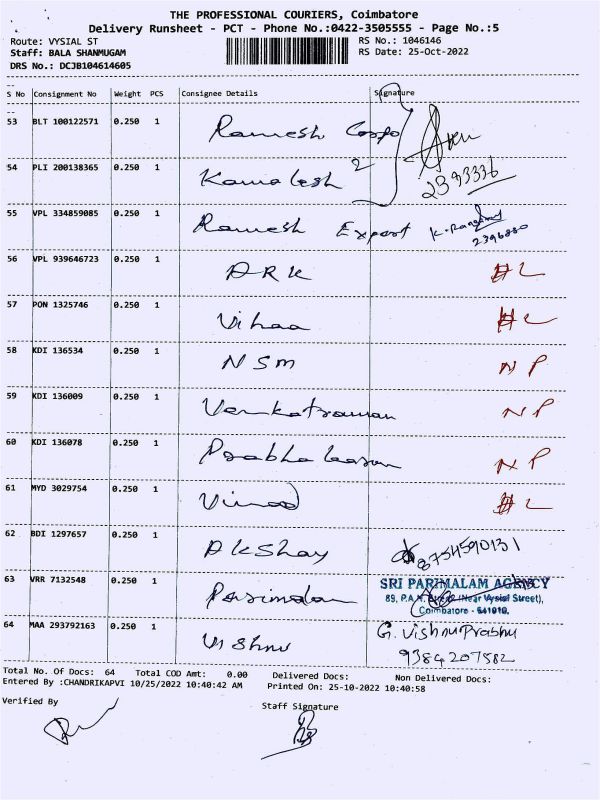 THE PROFESSIONAL COURIERS, Coimbatore
Delivery Runsheet - PCT - Phone No.:0422-3505555 - Page No.:5
Route: VYSIAL ST RS No.: 1046146
Staff: BALA SHANMUGAM RS Date: 25-Oct-2022
DRS No.: DCJB104614605
S No Consignment No Weight PCS Consignee Details Signature
53 BLT 100122571 0.250 1 Ramesh Corpo
54 PLI 200138365 0.250 1 Kamalesh 2 2393336
55 VPL 334859085 0.250 1 Ramesh Export 2396880
56 VPL 939646723 0.250 1 ARK HL
57 PON 1325746 0.250 1 Vihaa HL
58 KDI 136534 0.250 1 NSM NP
59 KDI 136009 0.250 1 Venkatraman NP
60 KDI 136078 0.250 1 Prabhakaran NP
61 MYD 3029754 0.250 1 Vinod HL
62 BDI 1297657 0.250 1 Akshay 8754590131
63 VRR 7132548 0.250 1 Parimalam SRI PARIMALAM AGENCY
89, P.A.N. Street (Near Vysial Street),
Coimbatore - 641010.
64 MAA 293792163 0.250 1 Vishnu G. Vishnu Prabhu
9384207582
Total No. Of Docs: 64 Total COD Amt: 0.00 Delivered Docs: Non Delivered Docs:
Entered By :CHANDRIKAPVI 10/25/2022 10:40:42 AM Printed On: 25-10-2022 10:40:58
Verified By Staff Signature